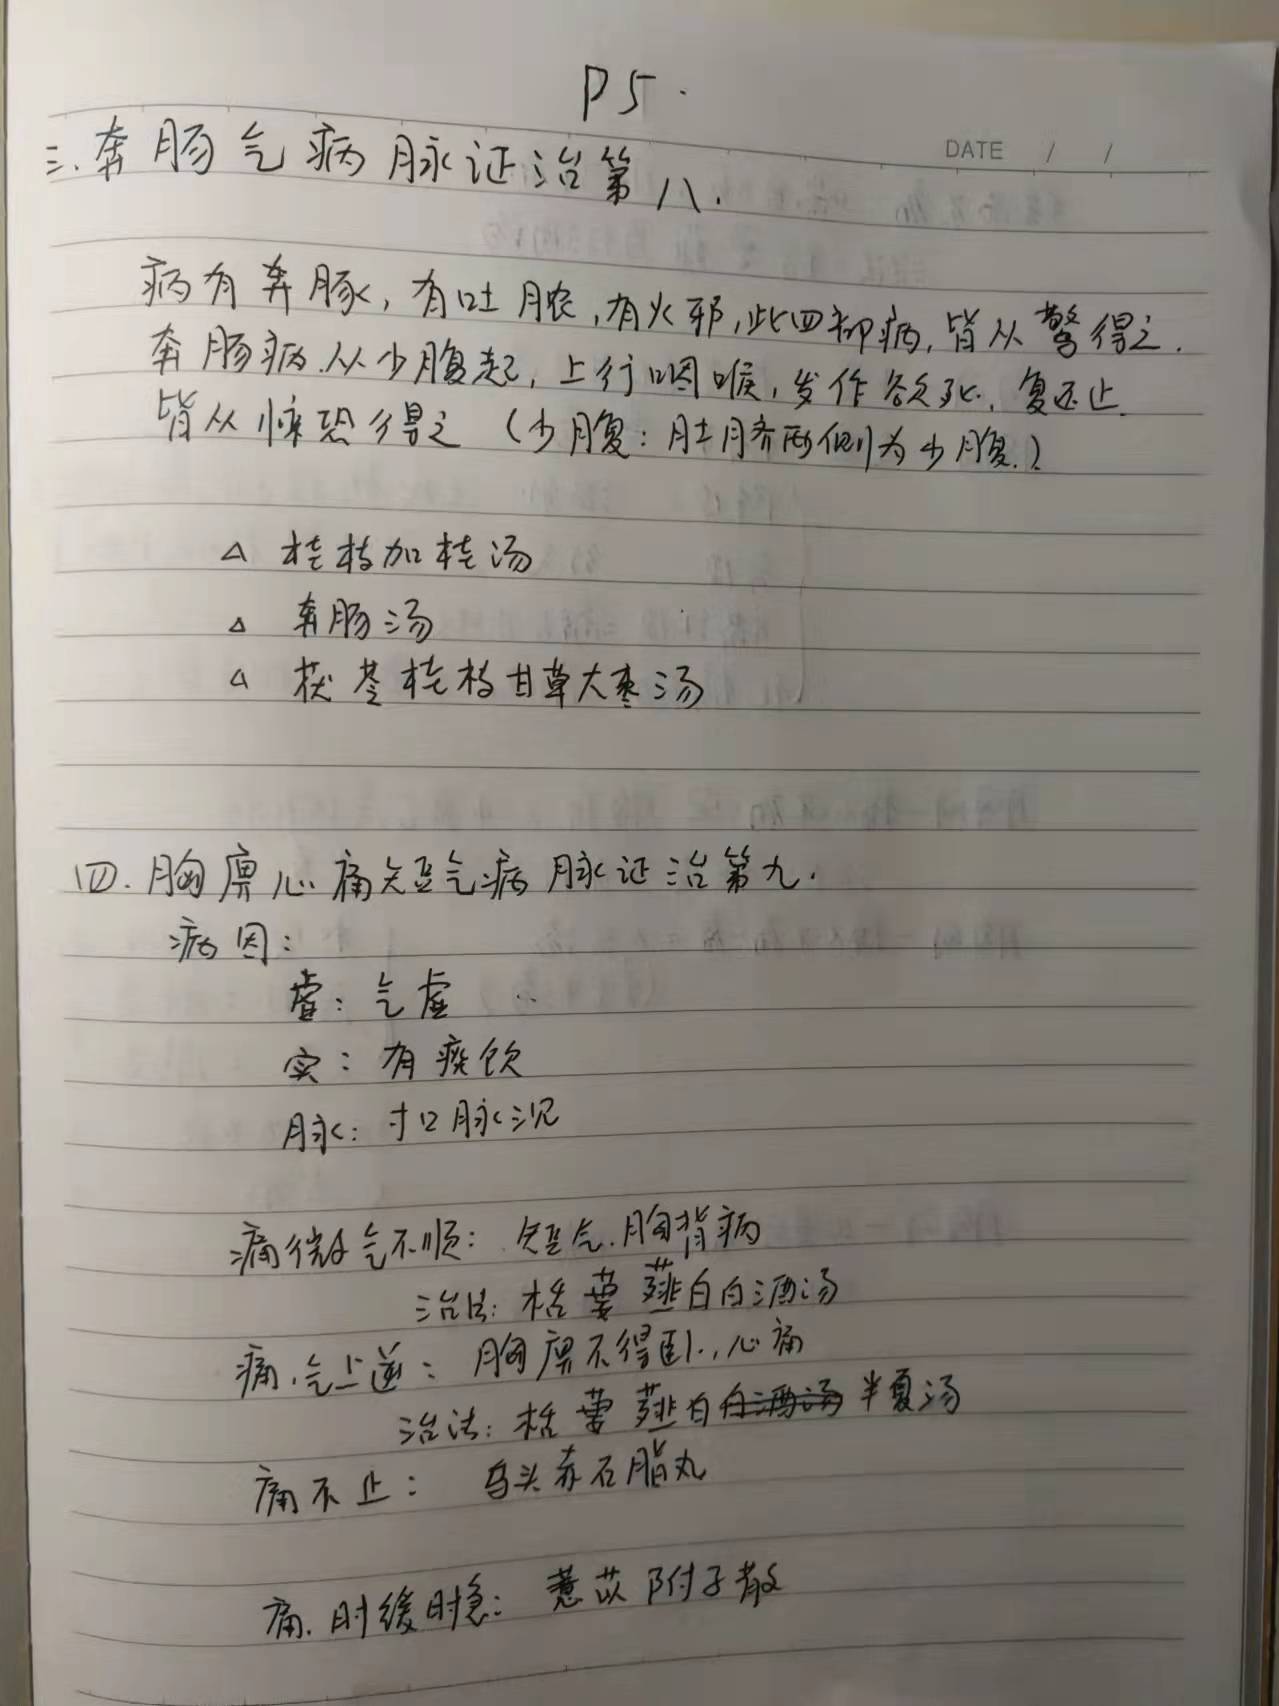 P5.
DATE / /
三.奔肠气病脉证治第八.
病有奔豚,有吐脓,有火邪,此四部病,皆从驚得之.
奔肠病.从少腹起,上行咽喉,发作欲死,复还止.
皆从惊恐得之(少腹:肚脐两侧为少腹.)
△ 桂枝加桂汤
△ 奔肠汤
△ 茯苓桂枝甘草大枣汤
四.胸痹心痛短气病脉证治第九.
病因:
虚:气虚
实:有痰饮
脉:寸口脉沉
痛微气不顺:短气.胸背病
治法:栝蒌薤白白酒汤
痛.气上逆:胸痹不得卧.,心痛
治法:栝蒌薤白白酒汤半夏汤
痛不止:乌头赤石脂丸
痛.时缓时急:薏苡附子散